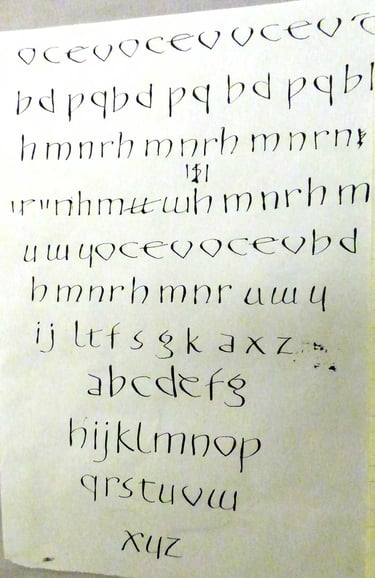 ocevocevocev
bdpqbd pq bd pqb
hmnrh mnrh mnrn
nhm wh mnrhm
uwyocevocevbd
hmnrhmnr uwy
ij ltf s g k a x z
abcdefg
hijklmnop
qrstuvw
xyz